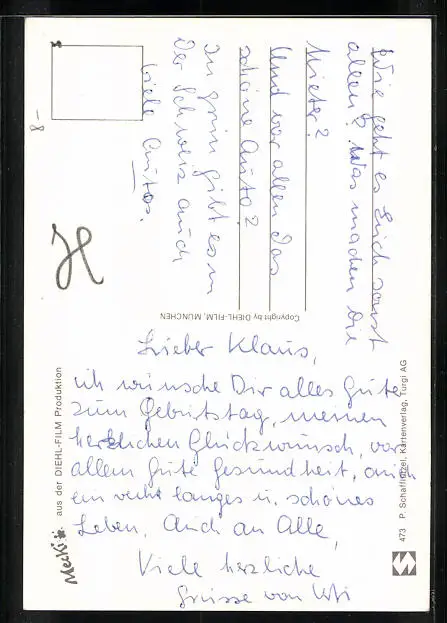 Lieber Klaus,
ich wünsche Dir alles Gute
zum Gebürtstag, meinen
herzlichen Glückwünsch, vor
allem gute Gesundheit, auch
ein recht langes u. schönes
Leben. Auch an Alle,
Viele herzliche
Grüsse von
Wie geht es Euch sonst
allen? Was machen die
Mieter?
Und vor allen das
schöne Auto?
In grün gibt es in
Der Schweiz auch
viele Autos.
8-
H
Copyright by DIEHL-FILM, MÜNCHEN
Mecki aus der DIEHL-FILM Produktion
473 P. Schafflützel, Kartenverlag, Turgi AG